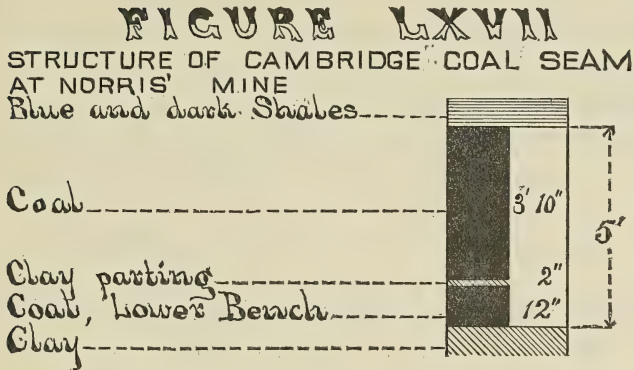 FIGURE LXVII
STRUCTURE OF CAMBRIDGE COAL SEAM
AT NORRIS' MINE
Blue and dark Shales
Coal
3' 10"
5'
Clay parting
2"
Coal, Lower Bench
12"
Clay